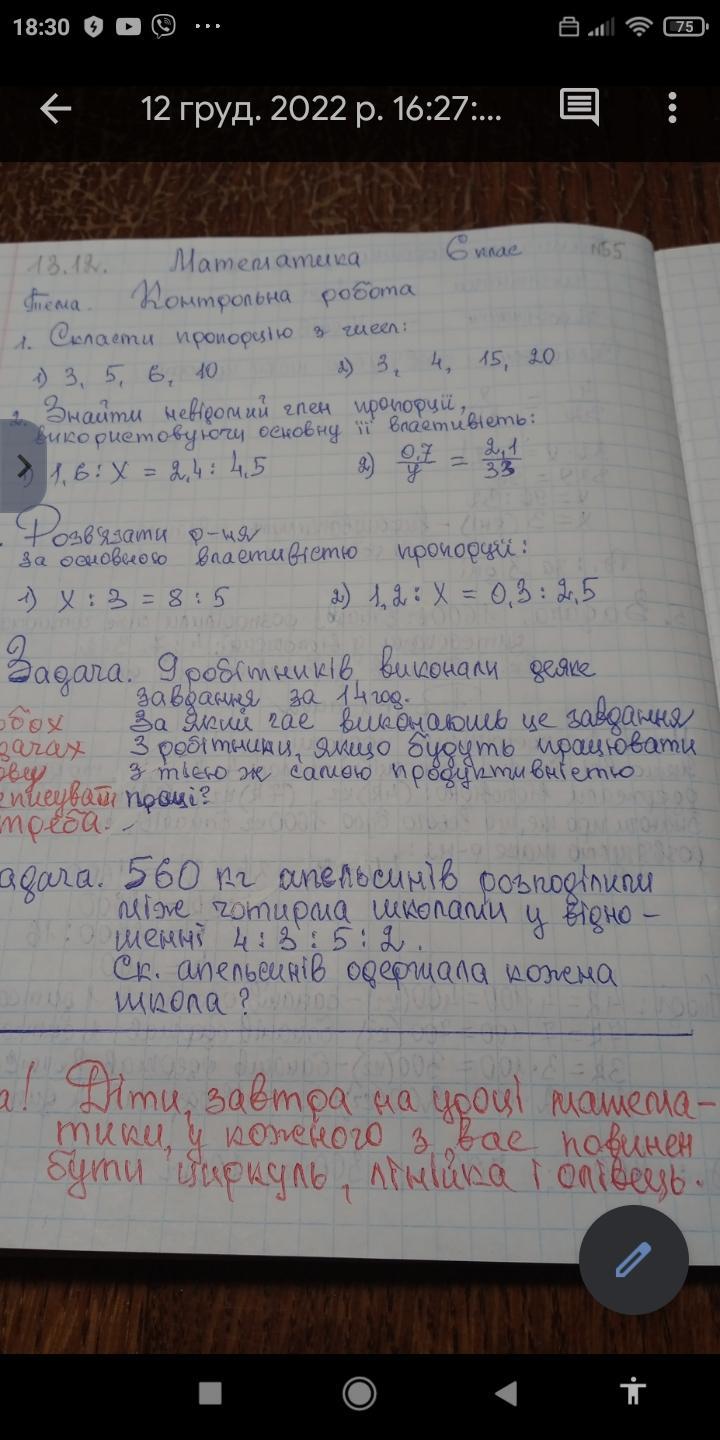 18:30
75
12 груд. 2022 р. 16:27:...
13.12. Математика 6 клас №55
Тема. Контрольна робота
1. Скласти пропорцію з чисел:
1) 3, 5, 6, 10 2) 3, 4, 15, 20
2. Знайти невідомий член пропорції,
використовуючи основну її властивість:
1) 1,6 : х = 2,4 : 4,5 2) 0,7/у = 2,1/33
. Розв'язати р-ня
за основною властивістю пропорції:
1) х : 3 = 8 : 5 2) 1,2 : х = 0,3 : 2,5
Задача. 9 робітників виконали деяке
завдання за 14 год.
обох За який час виконають це завдання
дачах 3 робітники, якщо будуть працювати
ову з тією ж самою продуктивністю
еписувати праці?
треба.
адача. 560 кг апельсинів розподілили
між чотирма школами у відно-
шенні 4 : 3 : 5 : 2.
Ск. апельсинів одержала кожна
школа?
а! Діти, завтра на уроці матема-
тики, у кожного з вас повинен
бути циркуль, лінійка і олівець.